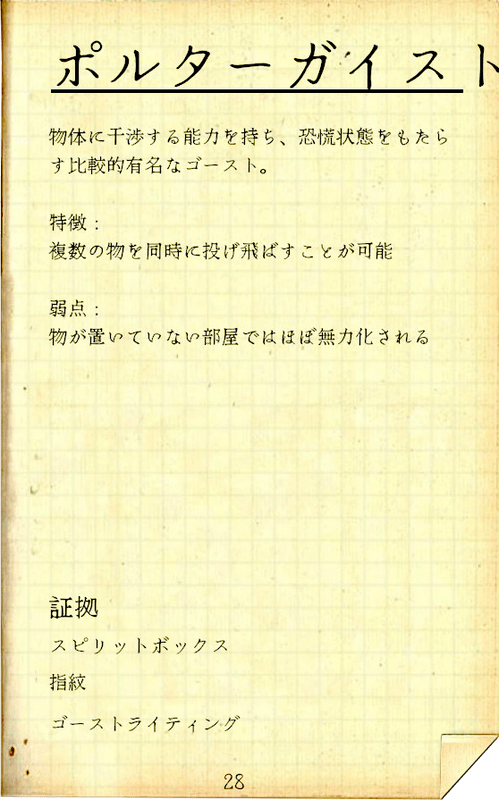 ポルターガイスト
物体に干渉する能力を持ち、恐慌状態をもたら
す比較的有名なゴースト。
特徴：
複数の物を同時に投げ飛ばすことが可能
弱点：
物が置いていない部屋ではほぼ無力化される
証拠
スピリットボックス
指紋
ゴーストライティング
28